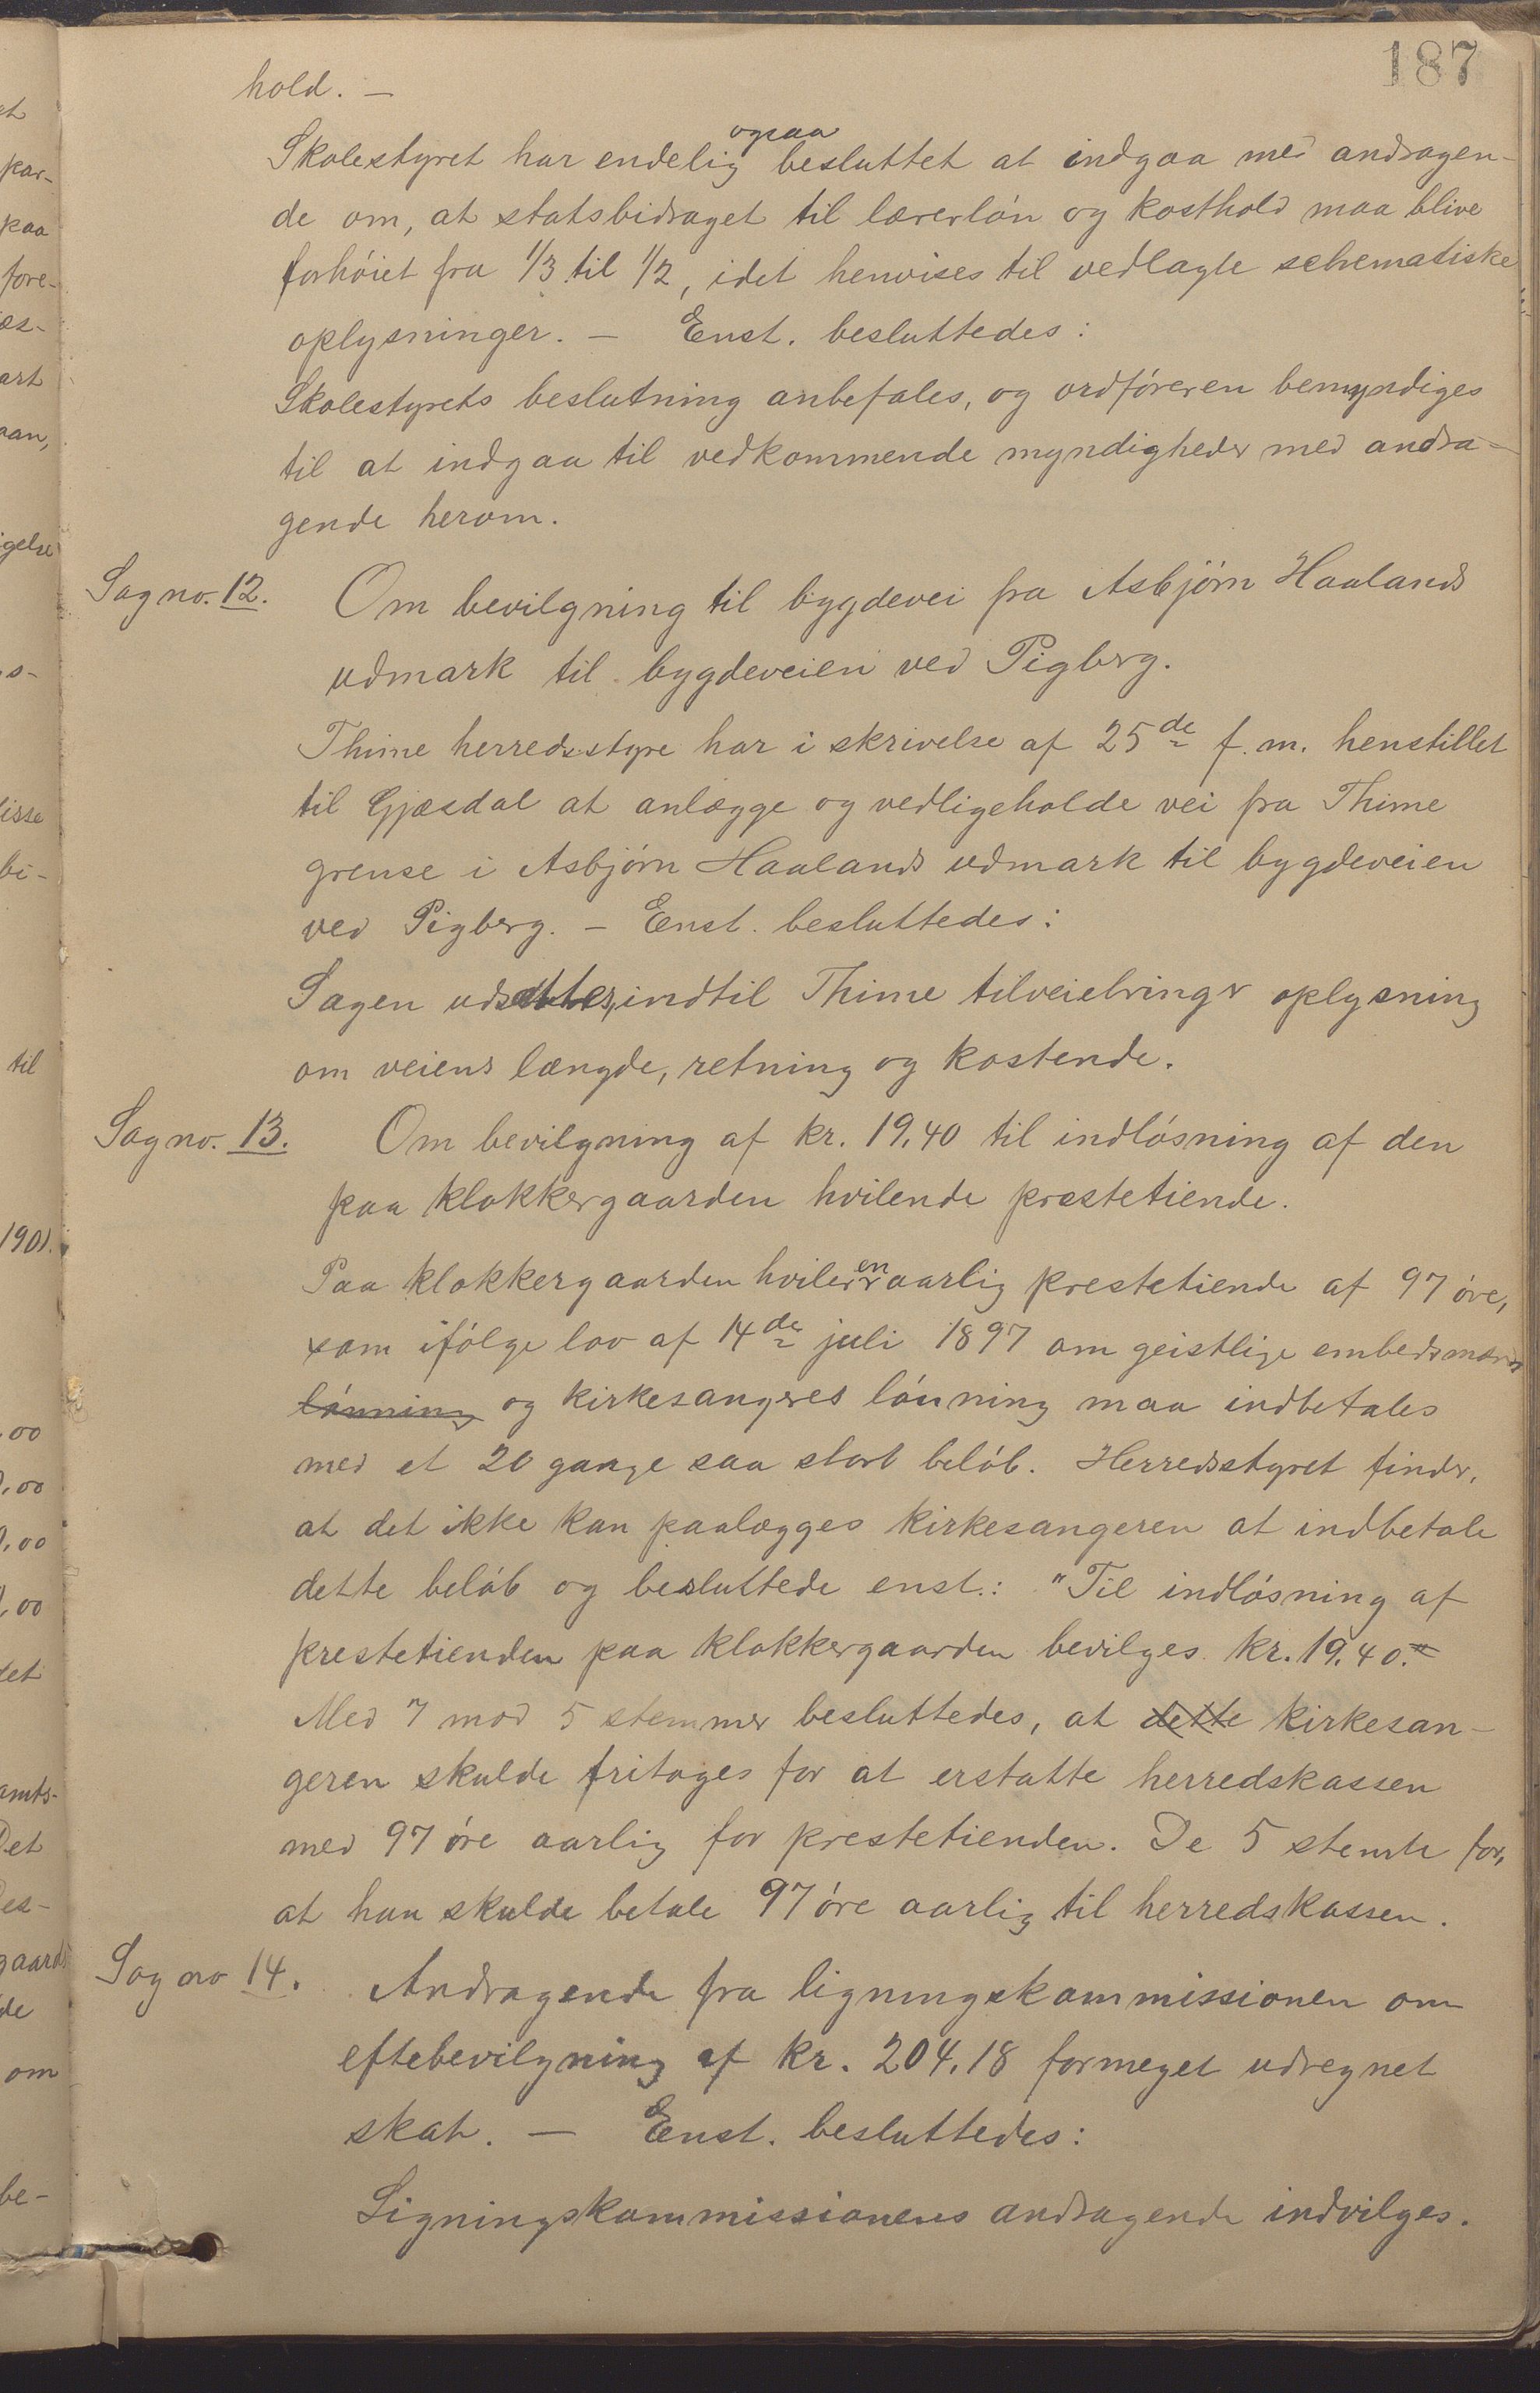 187
hold. —
Skolestyret har endelig ogsaa besluttet at indgaa med andragen-
de om, at statsbidraget til lærerløn og kosthold maa blive
forhøiet fra 1/3 til 1/2, idet henvises til vedlagte schematiske
oplysninger. — Enst. besluttedes:
Skolestyrets beslutning anbefales, og ordføreren bemyndiges
til at indgaa til vedkommende myndigheder med andra-
gende herom.
Sag no. 12. Om bevilgning til bygdevei fra Asbjørn Haalands
udmark til bygdeveien ved Pigberg.
Thime herredsstyre har i skrivelse af 25de f. m. henstillet
til Gjæsdal at anlægge og vedligeholde vei fra Thime
grense i Asbjørn Haalands udmark til bygdeveien
ved Pigberg. — Enst. besluttedes:
Sagen udsættes, indtil Thime tilveiebringer oplysning
om veiens længde, retning og kostende.
Sag no. 13. Om bevilgning af kr. 19.40 til indløsning af den
paa klokkergaarden hvilende præstetiende.
Paa klokkergaarden hviler en aarlig prestetiende af 97 øre,
som ifølge lov af 14de juli 1897 om geistlige embedsmænds
lønning og kirkesangeres lønning maa indbetales
med et 20 gange saa stort beløb. Herredsstyret finder,
at det ikke kan paalægges kirkesangeren at indbetale
dette beløb og besluttede enst.: "Til indløsning af
prestetienden paa klokkergaarden bevilges kr. 19.40."
Med 7 mod 5 stemmer besluttedes, at dette kirkesan-
geren skulde fritages for at erstatte herredskassen
med 97 øre aarlig for prestetienden. De 5 stemte for,
at han skulde betale 97 øre aarlig til herredskassen.
Sag no 14. Andragende fra ligningskommissionen om
eftebevilgning af kr. 204.18 formeget udregnet
skat. — Enst. besluttedes:
Ligningskommissionens andragende indvilges.